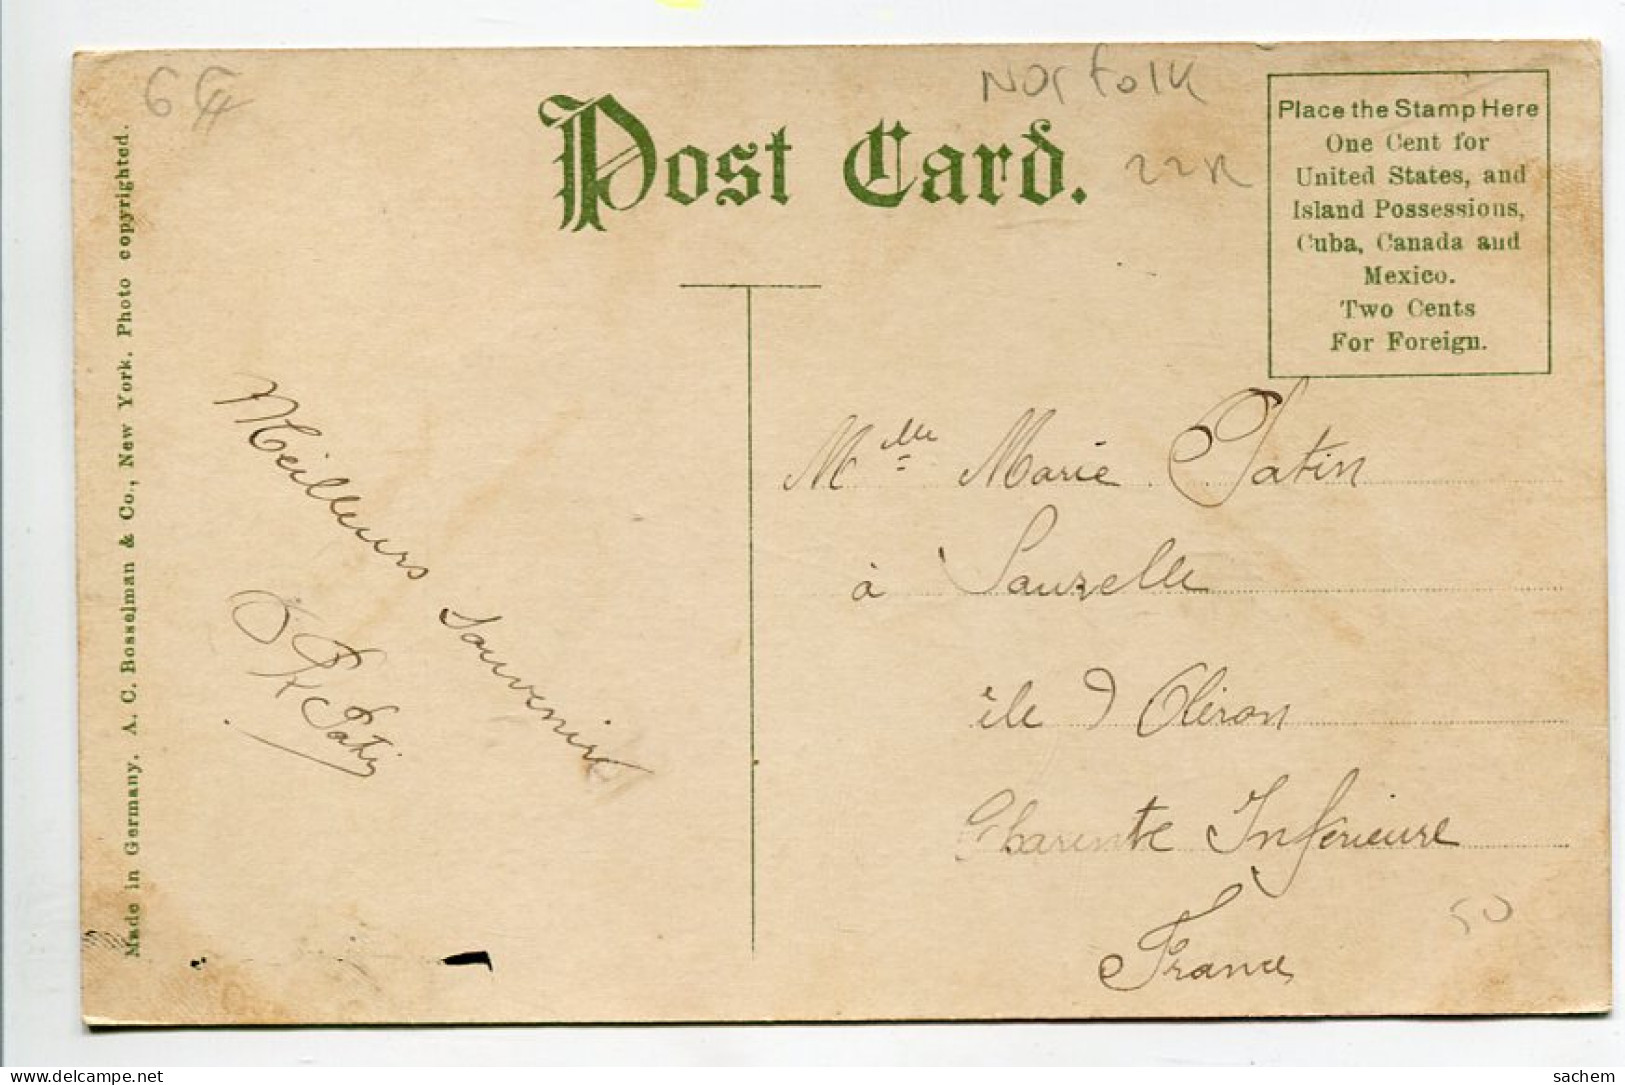 Norfolk
Post Card.
22K
Place the Stamp Here
One Cent for
United States, and
Island Possessions,
Cuba, Canada and
Mexico.
Two Cents
For Foreign.
Made in Germany. A. C. Bosselman & Co., New York. Photo copyrighted.
Meilleurs Souvenirs
Patin
Mlle Marie Patin
à Sauzelle
île d'Oléron
Charente Inférieure
France
50
delcampe.net
sachem